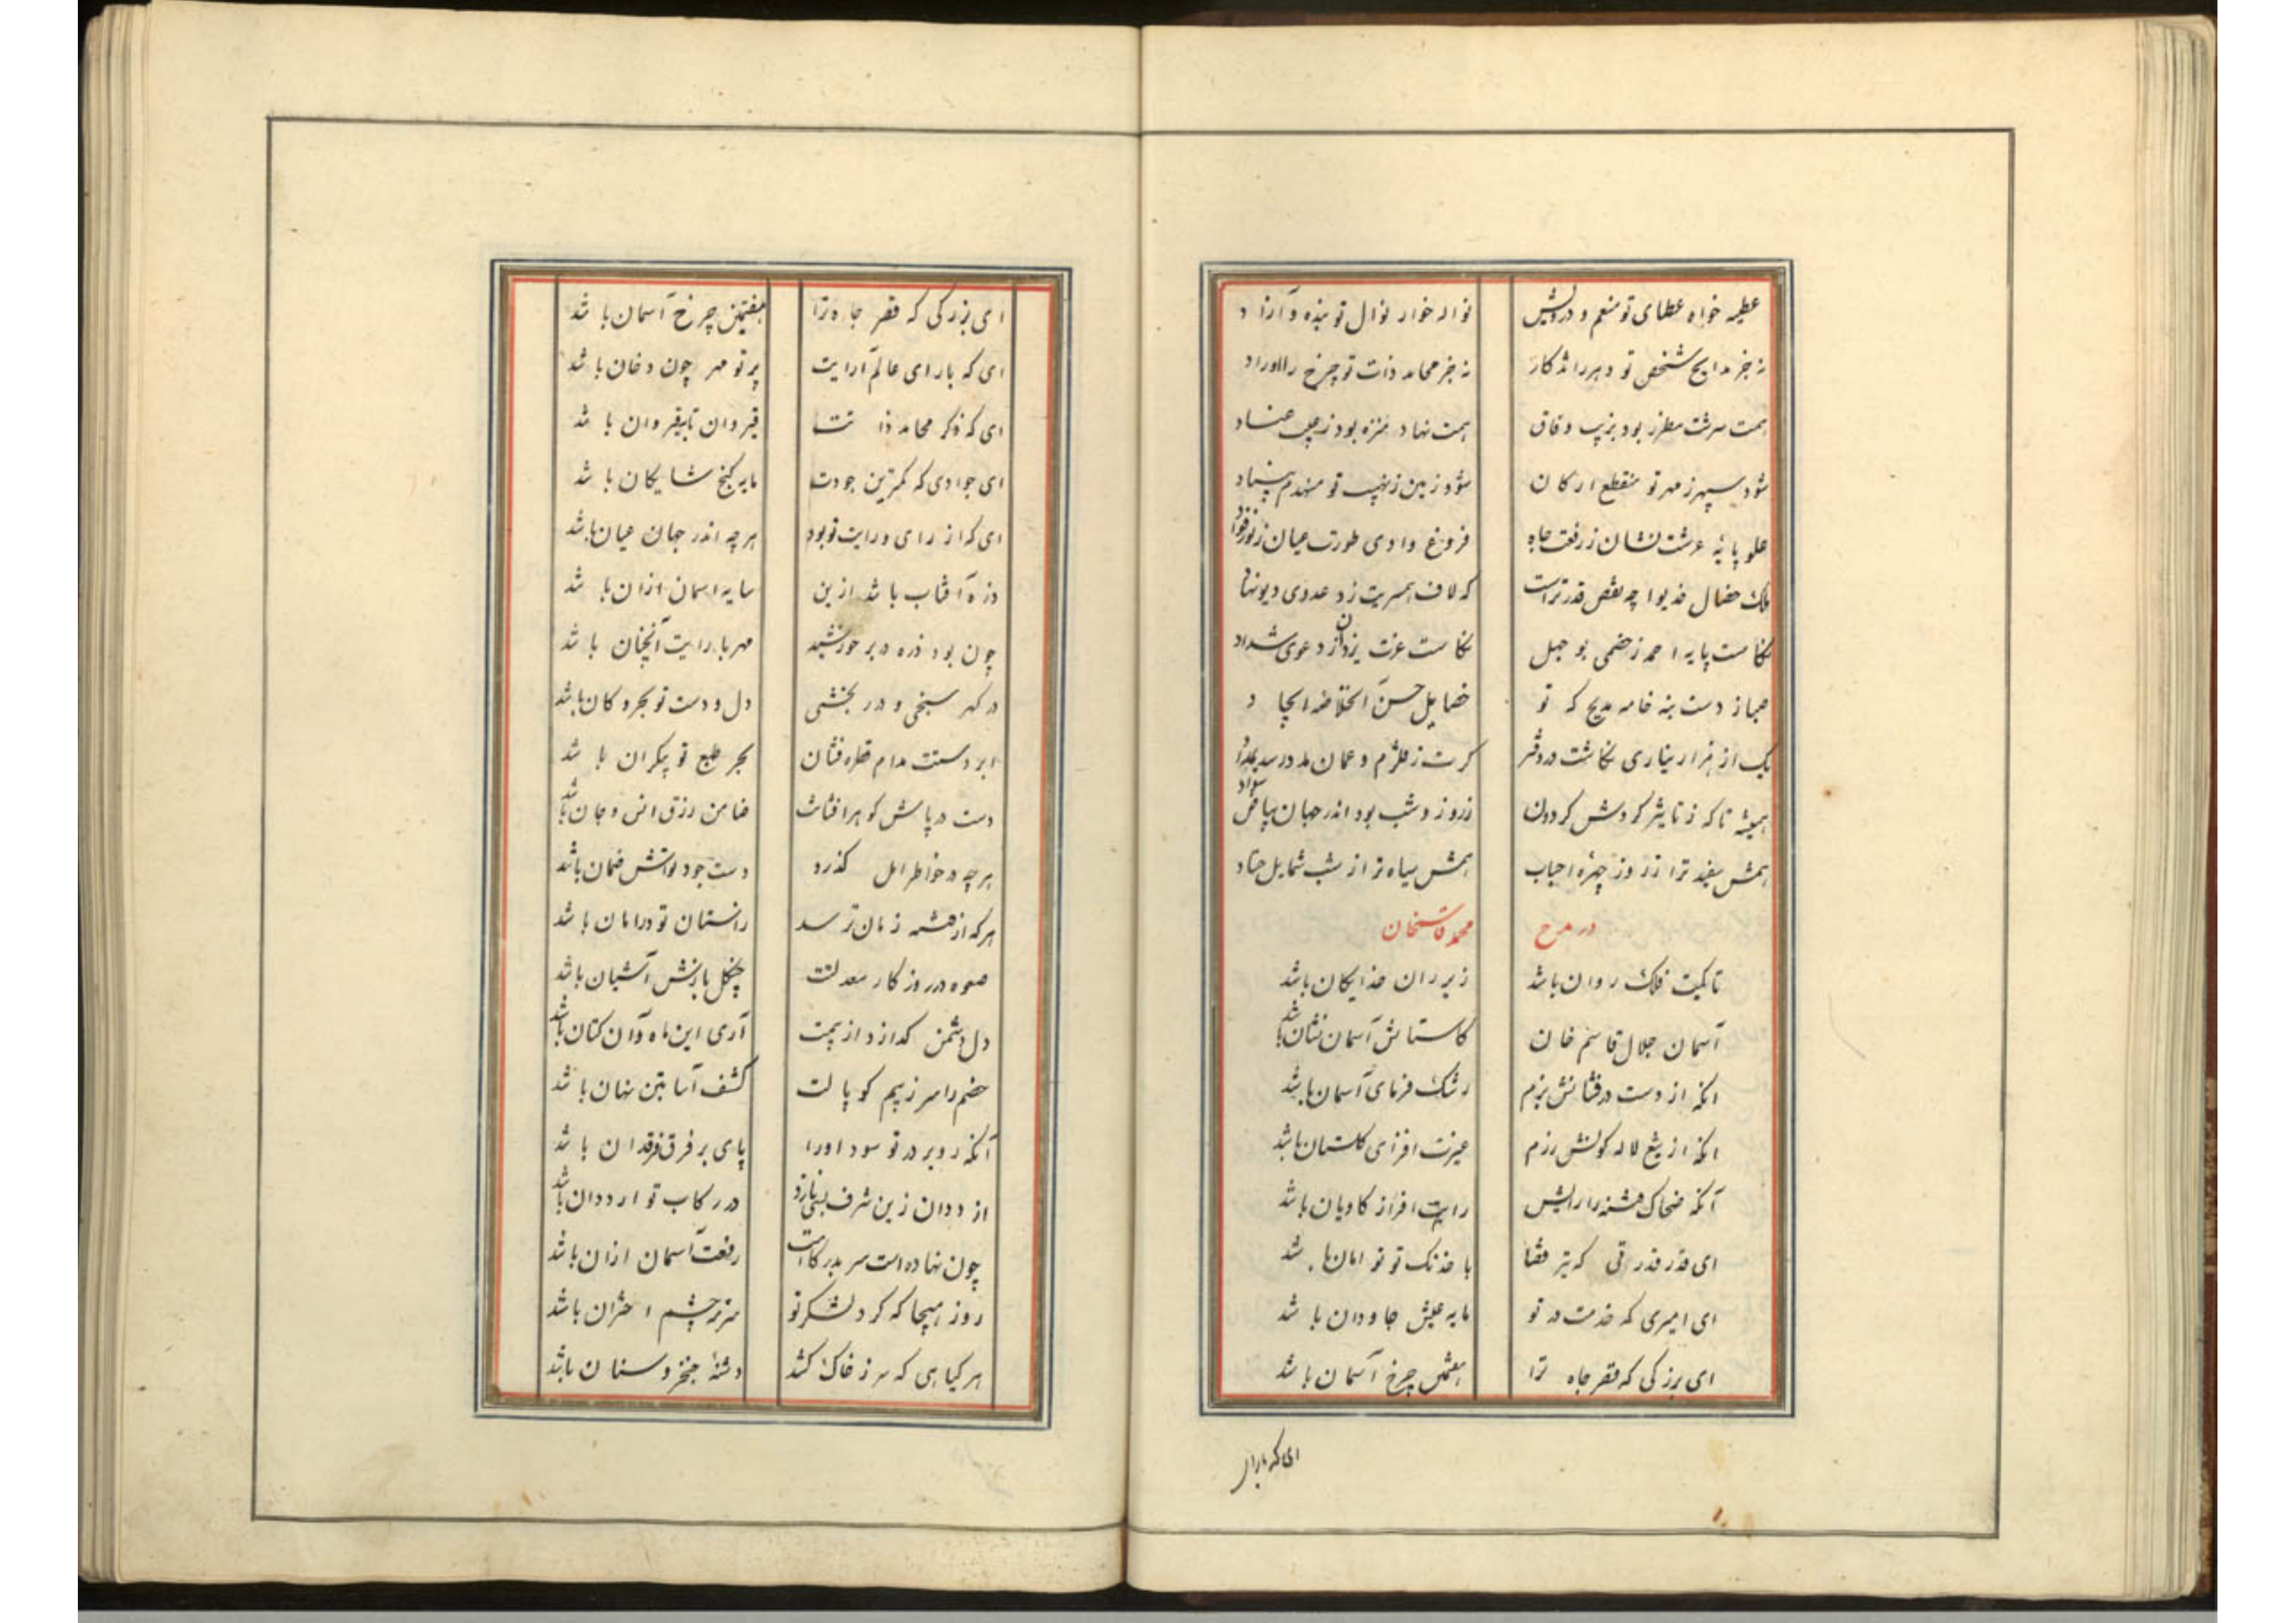 عطیه خواه عطای تو منعم و درویش نواله خوار نوال تو بنده و آزاد
نه جز مدایح شخص تو دهر را اذکار نه جز محامد ذات تو چرخ را اوراد
همت سرشت مطرز بود بزیب وفاق همت نهاد منزه بود ز عیب عناد
شود سپهر ز مهر تو منقطع ارکان شود زمین ز نهیب تو منهدم بنیاد
علو پایهٔ عرشت نشان ز رفعت جاه فروغ وادی طورت عیان ز نور فؤاد
ملک خصال خدیوا چه نقص قدر تراست که لاف همسریت زد عدوی دیونهاد
نکاست پایه احمد ز خصمی بوجهل نکاست عزت یزدان از دعوی شداد
صبا ز دست بنه خامه مدیح که تو خصایل حسن الخلاصه ایجاد
یک از هزار نیاری نگاشت در دفتر گرت ز قلزم و عمان مدد رسد بمداد
همیشه تا که ز تاثیر گردش گردون ز روز و شب بود اندر جهان بیاض سواد
همش سفید تر از روز چهره احباب همش سیاه تر از شب شمایل حساد
در مدح محمد قاسمخان
تا کمیت فلک روان باشد زیر ران خدایگان باشد
آسمان جلال قاسم خان کاستانش آسمان نشان باشد
انکه از دست درفشانش بزم رشک فرمای آسمان باشد
انکه از تیغ لاله گونش رزم عبرت افزای گلستان باشد
آنکه ضحاک فتنه را رایش رایت افراز کاویان باشد
ای قدر قدرتی که تیر قضا با خدنگ تو توامان باشد
ای امیری که خدمت در تو مایه عیش جاودان باشد
ای بزرگی که قصر جاه ترا هفتمین چرخ آسمان باشد
ای که بارای
ای بزرگی که قصر جاه ترا هفتمین چرخ آسمان باشد
ای که بارای عالم ارایت پرتو مهر چون دخان باشد
ای که ذکر محامد ذاتت قیروان تا بقیروان باشد
ای جوادی که کمترین جودت مایه گنج شایگان باشد
ای که از رای و رایت تو بود هر چه اندر جهان عیان باشد
ذره آفتاب باشد ازین سایه اسمان ازان باشد
چون بود ذره در بر خورشید مهر با رایت آنچنان باشد
در گهر سنجی و درر بخشی دل و دست تو بحر و کان باشد
ابر دستت مدام قطره فشان بحر طبع تو بیکران باشد
دست درپاش گوهر افشانت ضامن رزق انس و جان باشد
هر چه در خاطر امل گذرد دست جود تواش ضمان باشد
هر که از فتنه زمان ترسد راستان تو در امان باشد
صعوه در روزگار معدلتت چنگل بازش آشیان باشد
دل دشمن گدازد از بیمت آری این ماه و آن کتان باشد
خصم را سر ز بیم کوپالت کشف آسا بتن نهان باشد
آنکه رو بر در تو سود اورا پای بر فرق فرقدان باشد
از ددان زین شرف نمی نازد در رکاب تو ار ددان باشد
چون نهاده است سر بدرگاهت رفعت آسمان ازان باشد
روز هیجا که گرد لشکر تو سرمه چشم اختران باشد
هر گیاهی که سر ز خاک کشد دشنه خنجر و سنان باشد